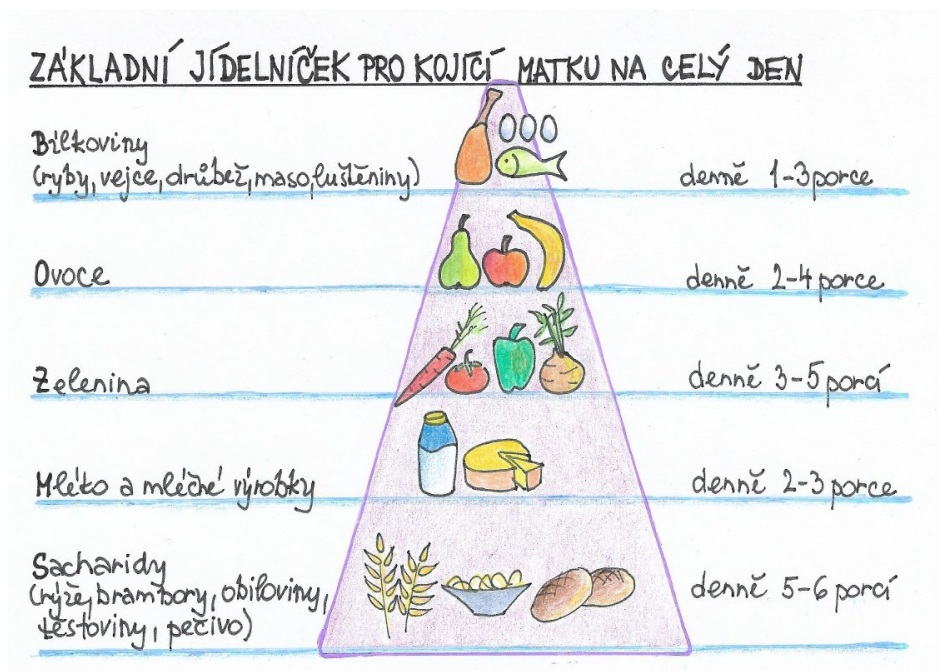 ZÁKLADNÍ JÍDELNÍČEK PRO KOJÍCÍ MATKU NA CELÝ DEN
Bílkoviny
(ryby, vejce, drůbež, maso, luštěniny)
denně 1-3 porce
Ovoce
denně 2-4 porce
Zelenina
denně 3-5 porcí
Mléko a mléčné výrobky
denně 2-3 porce
Sacharidy
(rýže, brambory, obiloviny,
těstoviny, pečivo)
denně 5-6 porcí